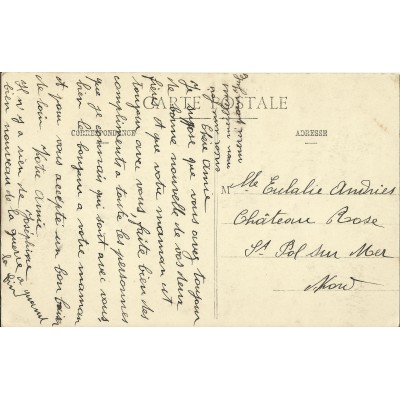 CARTE POSTALE
CORRESPONDANCE
ADRESSE
Chère Amie
Je suppose que vous avez toujour
de bonne nouvelle de vos deux
et que votre maman est
toujour avec vous, faite bien des
compliments a toute les personnes
que je connai qui sont avec vous
bien le bonjour a votre maman
et pour vous accepté un bon baiser
de loin Votre Amie
Joséphine
Il n'y a rien de
bien nouveau de la guerre a quand
la fin
Mlle Eulalie Andries
Château Rose
St Pol sur Mer
Nord